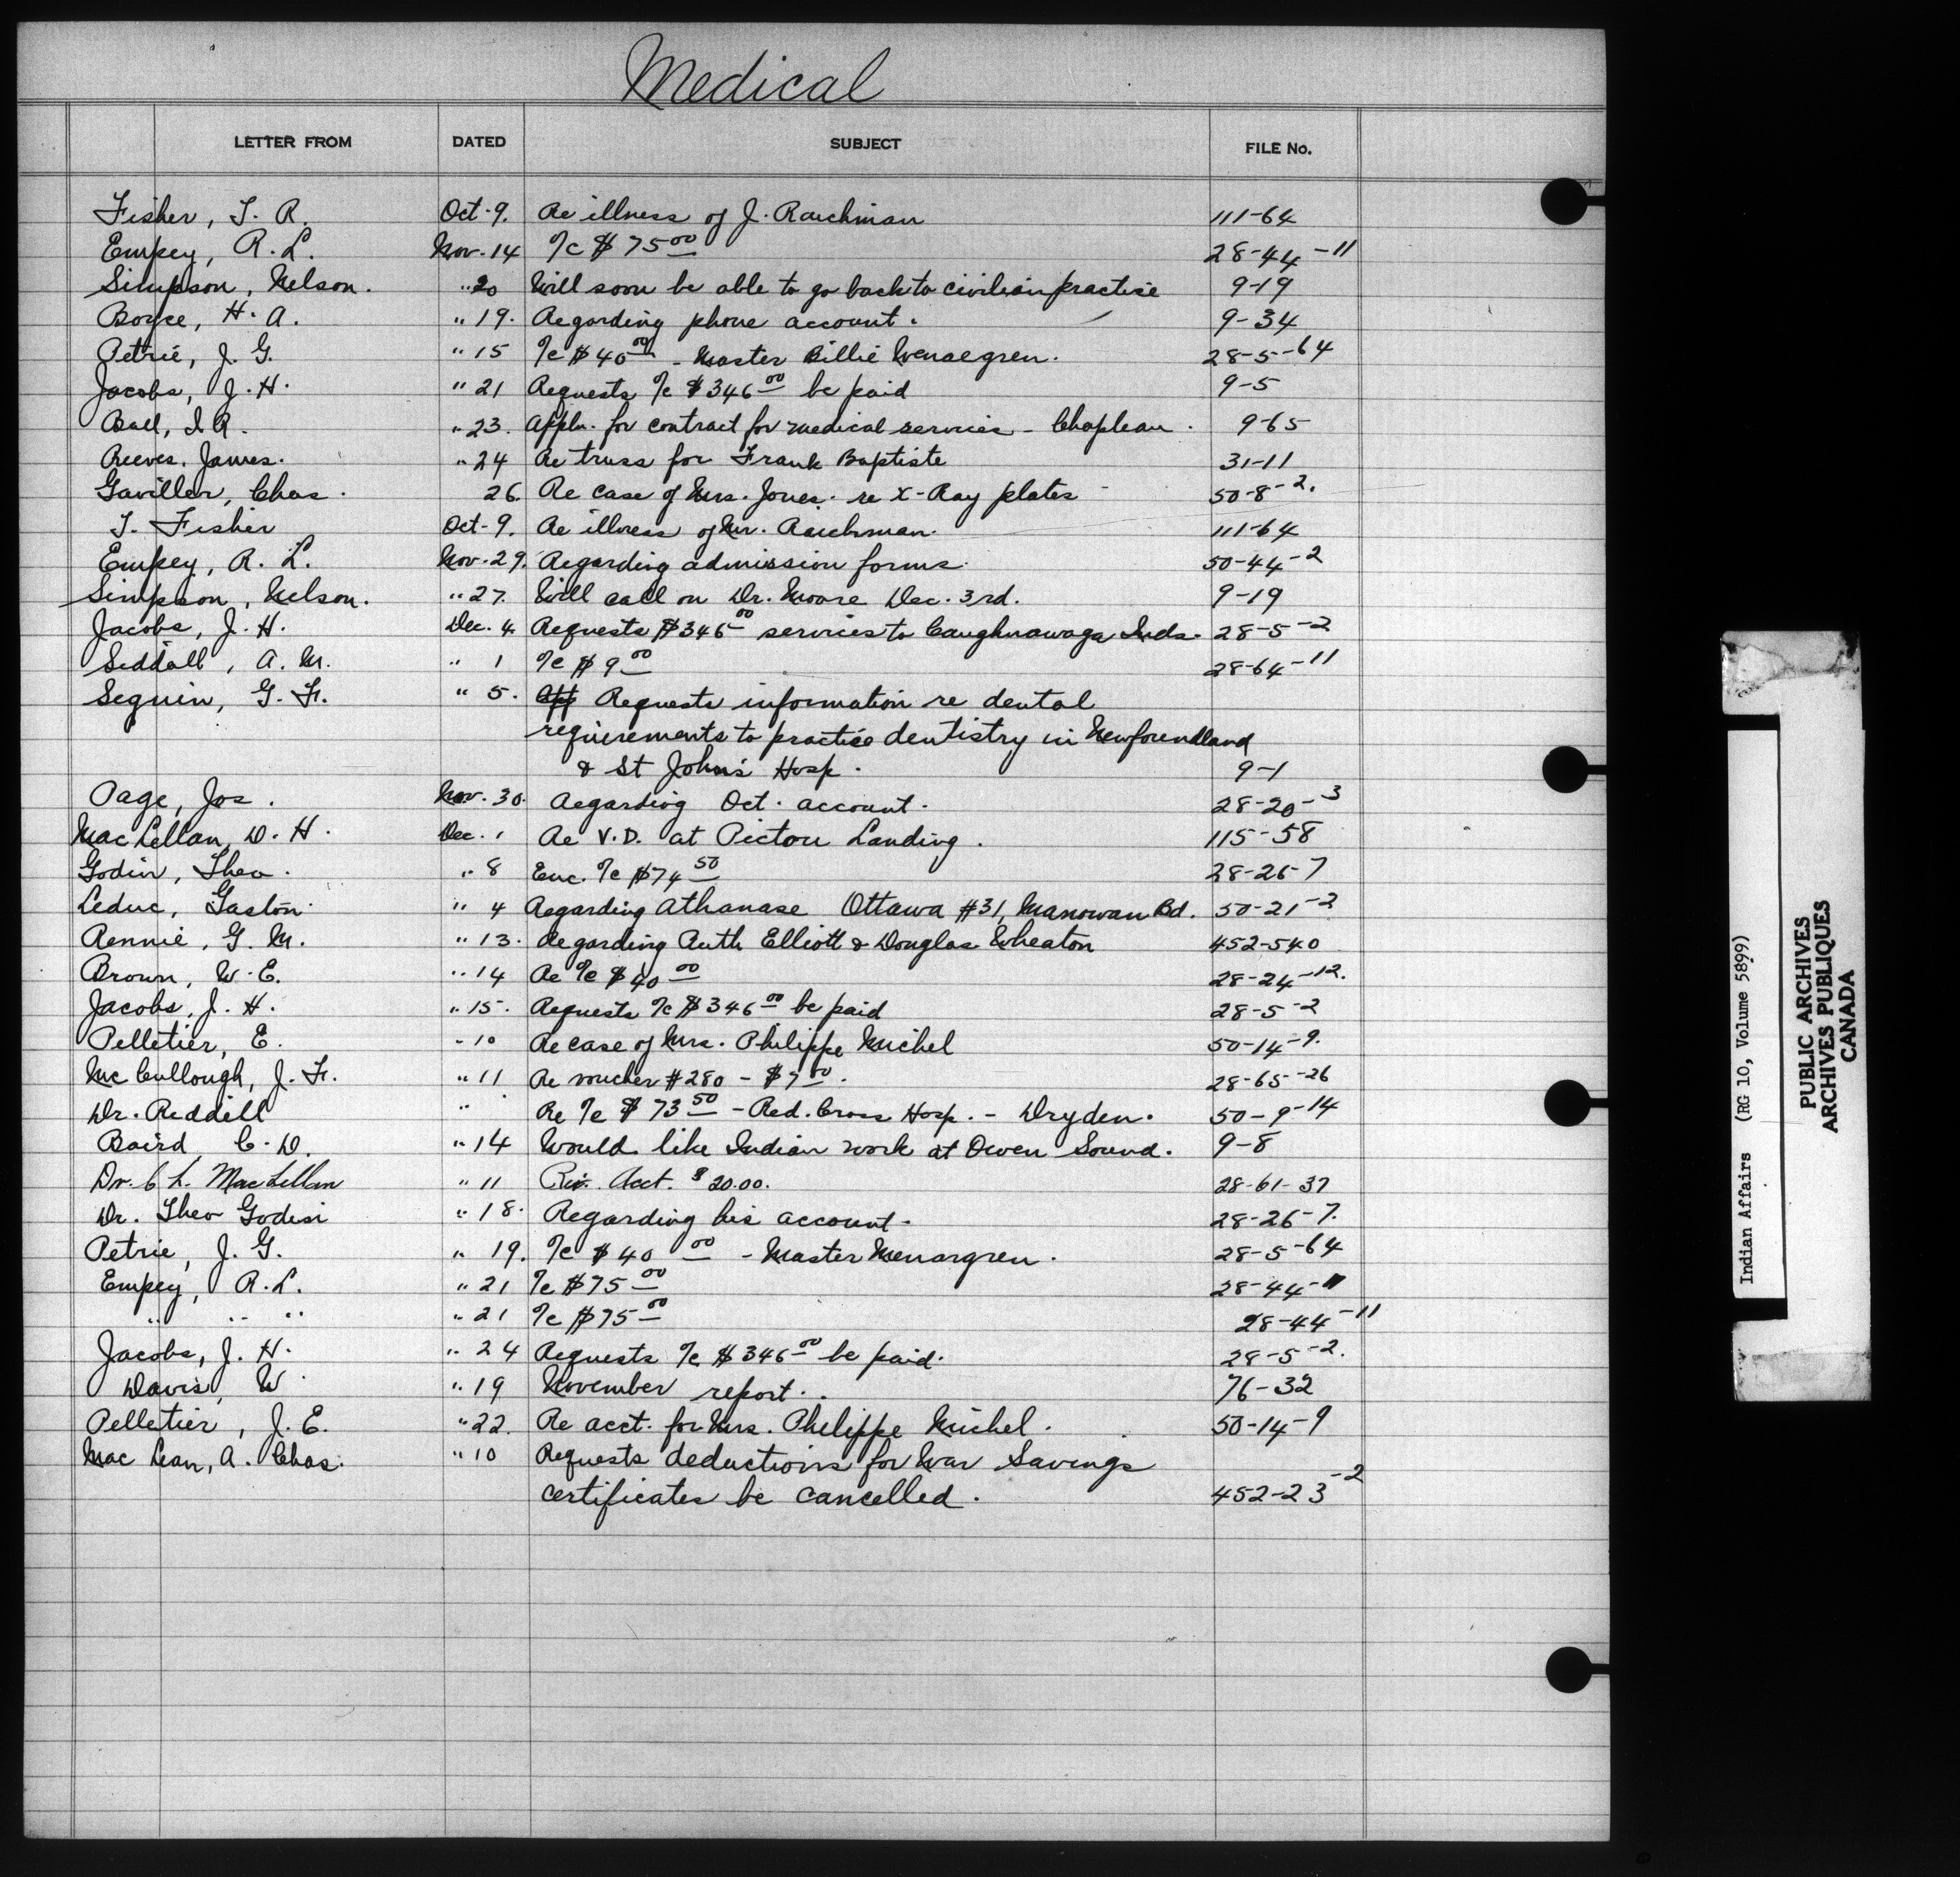 Medical
LETTER FROM DATED SUBJECT FILE No.
Fisher, T. R. Oct. 9. Re illness of J. Raichman 111-64
Empey, R. L. Nov. 14 a/c $75.00 28-44-11
Simpson, Nelson. " 20 Will soon be able to go back to civilian practise 9-19
Boyce, H. A. " 19. Regarding phone account. 9-34
Petrie, J. G. " 15 a/c $40.00 - Master Billie 28-5-64
Jacobs, J. H. " 21 Requests a/c $346.00 be paid 9-5
Ball, I. R. " 23. Appln. for contract for medical services - Chapleau. 9-65
Reeves, James. " 24 Re truss for Frank Baptiste 31-11
Gaviller, Chas. 26. Re case of Mrs. Jones. re X-Ray plates 50-8-2.
T. Fisher Oct. 9. Re illness of Mr. Raichman. 111-64
Empey, R. L. Nov. 29. Regarding admission forms. 50-44-2
Simpson, Nelson. " 27. Will call on Dr. Moore Dec. 3rd. 9-19
Jacobs, J. H. Dec. 4. Requests $346.00 services to Caughnawaga Inds. 28-5-2
Siddall, A. M. " 1 a/c $9.00 28-64-11
Seguin, G. Fr. " 5. App Requests information re dental
requirements to practise dentistry in Newfoundland
& St John's Hosp. 9-1
Page, Jos. Nov. 30. Regarding Oct. account. 28-20-3
MacLellan, D. H. Dec. 1 Re V.D. at Pictou Landing. 115-58
Godin, Theo. " 8 Enc. a/c $74.50 28-26-7
Leduc, Gaston. " 4 Regarding Athanase Ottawa #31, Manowan Bd. 50-21-2
Rennie, G. M. " 13. Regarding Ruth Elliott & Douglas Wheaton 452-540
Brown, W. E. " 14 Re a/c $40.00 28-24-12.
Jacobs, J. H. " 15. Requests a/c $346.00 be paid 28-5-2
Pelletier, E. " 10 Re case of Mrs. Philippe Michel 50-14-9.
McCullough, J. Fr. " 11 Re voucher #280 - $7.00. 28-65-26
Dr. Reddill " " Re a/c $73.50 - Red. Cross Hosp. - Dryden. 50-9-14
Baird C. D. " 14 Would like Indian work at Owen Sound. 9-8
Dr. C. L. MacLellan " 11 Acct. $20.00. 28-61-37
Dr. Theo Godin " 18. Regarding his account. 28-26-7.
Petrie, J. G. " 19. a/c $40.00 - Master 28-5-64
Empey, R. L. " 21 a/c $75.00 28-44-11
" " " " 21 a/c $75.00 28-44-11
Jacobs, J. H. " 24 Requests a/c $346.00 be paid. 28-5-2.
Davis, W " 19 November report. 76-32
Pelletier, J. E. " 22. Re acct. for Mrs. Philippe Michel. 50-14-9
MacLean, A. Chas. " 10 Requests deductions for War Savings
certificates be cancelled. 452-23-2
Indian Affairs (RG 10, Volume 5899)
PUBLIC ARCHIVES
ARCHIVES PUBLIQUES
CANADA